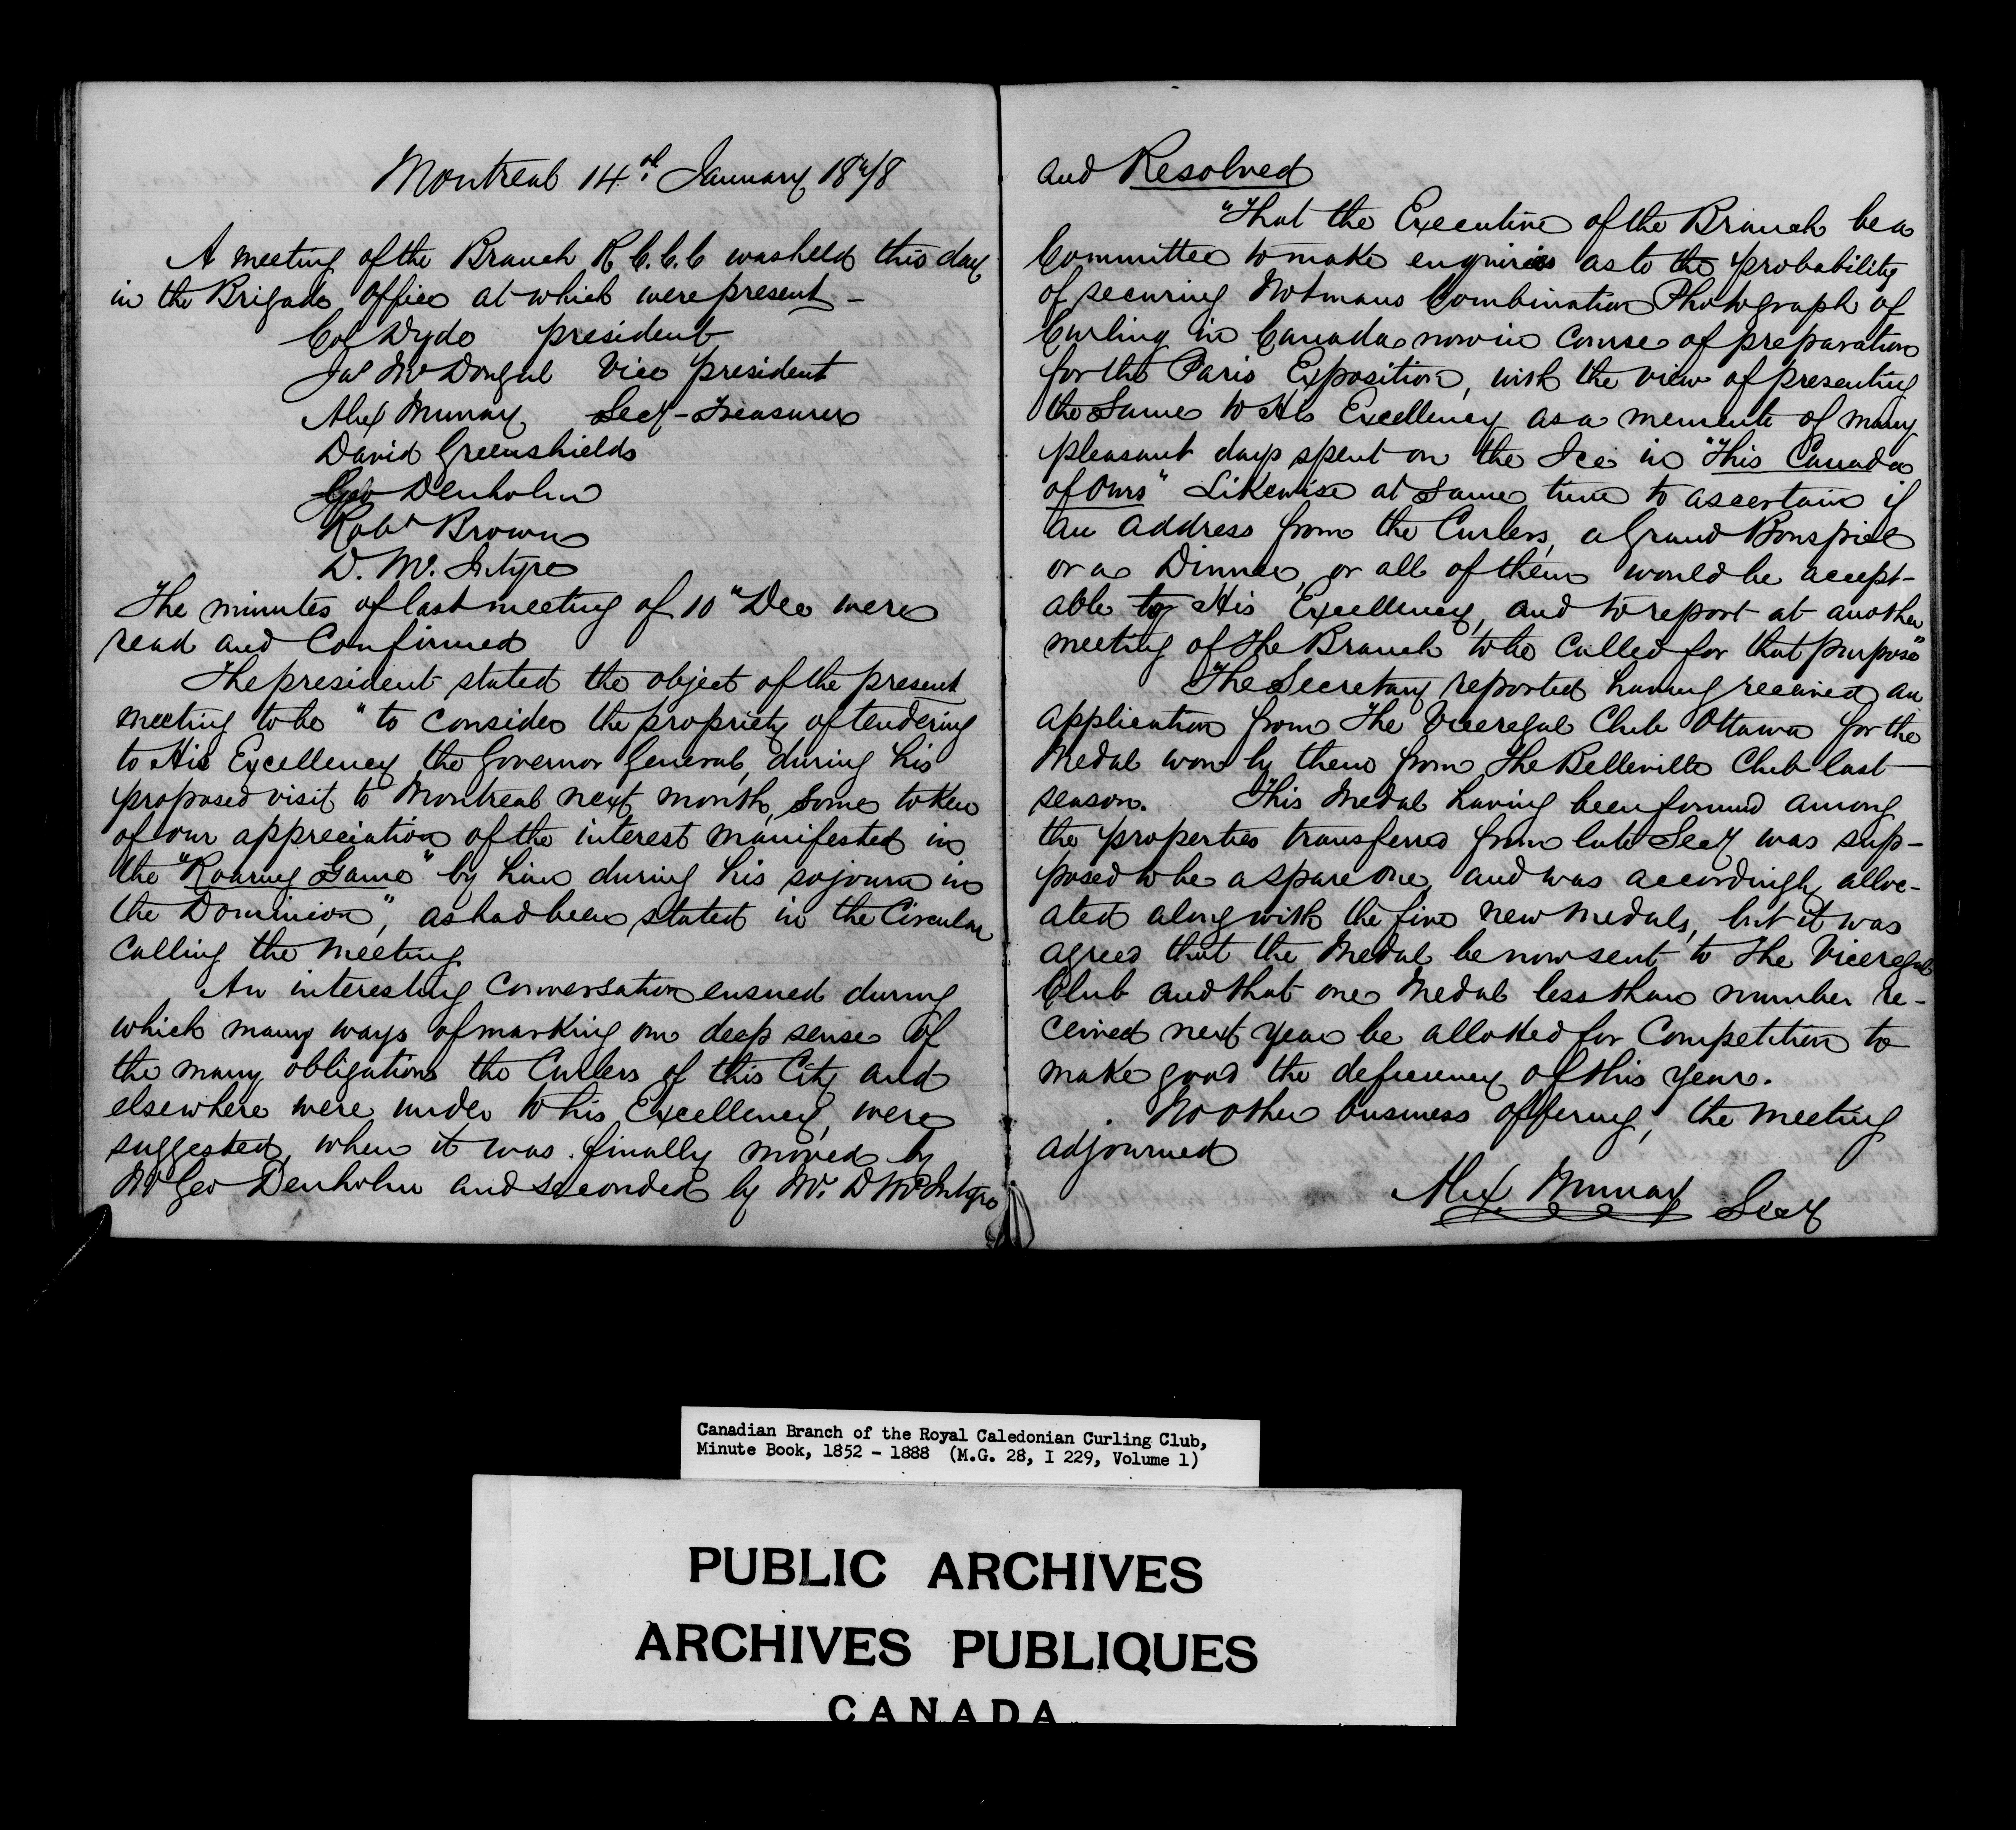 Montreal 14th January 1878
A meeting of the Branch R C. C. C was held this day
in the Brigade Office at which were present -
Col Dyde president
Jas McDougal Vice president
Alex Murray Secy - Treasurer
David Greenshields
Geo Denholm
Robt Brown
D. Mc. Intyre
The minutes of last meeting of 10" Dec were
read and Confirmed
The president stated the object of the present
meeting to be "to consider the propriety of tendering
to His Excellency the Governor General, during his
proposed visit to Montreal next month, some token
of our appreciation of the interest manifested in
the "Roaring Game" by him during his sojourn in
the Dominion", as had been stated in the Circular
calling the meeting
An interesting conversation ensued during
which many ways of marking our deep sense of
the many obligations the Curlers of this City and
elsewhere were under to his Excellency, were
suggested, when it was finally moved by
Mr Geo Denholm and seconded by Mr. D McIntyre
and Resolved
"That the Executive of the Branch be a
Committee to make enquiries as to the probability
of securing Notmans Combination Photograph of
Curling in Canada now in course of preparation
for the Paris Exposition, with the view of presenting
the Same to His Excellency as a memento of many
pleasant days spent on the Ice in "This Canada
of Ours" Likewise at same time to ascertain if
an address from the Curlers, a Grand Bonspiel
or a Dinner, or all of them would be accept-
able to His Excellency, and to report at another
meeting of the Branch to be called for that purpose"
The Secretary reported having received an
application from The Viceregal Club Ottawa for the
Medal won by them from The Belleville Club last
season. This Medal having been found among
the properties transferred from late Secy was sup-
posed to be a spare one, and was accordingly alloc-
ated along with the five new medals, but it was
agreed that the Medal be now sent to The Viceregal
Club and that one Medal less than number re-
ceived next year be allotted for Competition to
make good the deficiency of this year.
No other business offering, the meeting
adjourned
Alex Murray Secy
Canadian Branch of the Royal Caledonian Curling Club,
Minute Book, 1852 - 1888 (M.G. 28, I 229, Volume 1)
PUBLIC ARCHIVES
ARCHIVES PUBLIQUES
CANADA